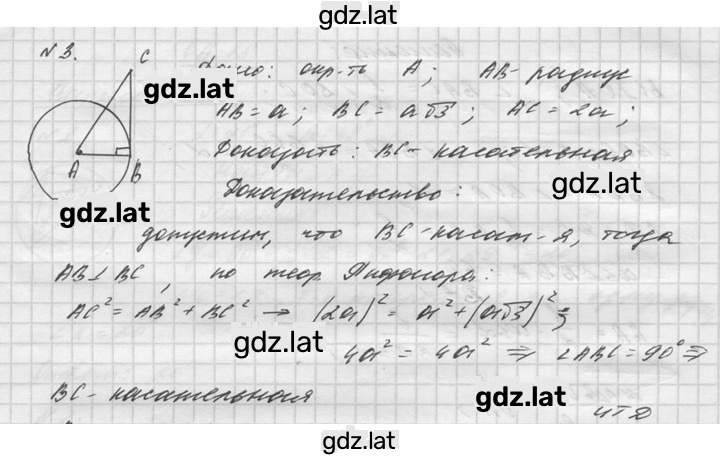 gdz.lat
N 3.
C
Дано: окр-ть A; AB - радиус
gdz.lat
AB = a; BC = a√3; AC = 2a;
A B
Доказать: BC - касательная
gdz.lat
Доказательство:
gdz.lat
допустим, что BC - касат-я, тогда
AB ⊥ BC, по теор. Пифагора:
AC² = AB² + BC² → (2a)² = a² + (a√3)²;
gdz.lat
4a² = 4a² ⇒ ∠ABC = 90° ⇒
BC - касательная
gdz.lat
ЧТД
gdz.lat